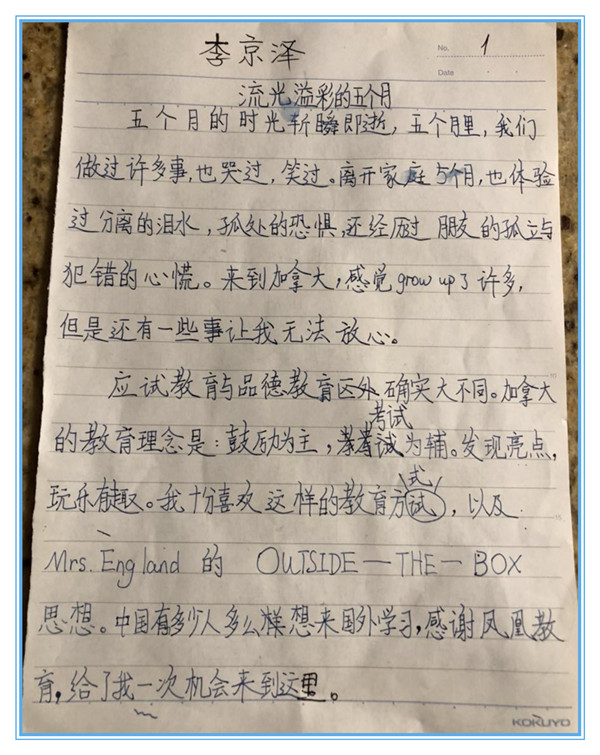 李京泽
No. 1
Date
流光溢彩的五个月
五个月的时光斩瞬即逝，五个月里，我们
做过许多事，也哭过，笑过。离开家庭5个月，也体验
过分离的泪水，孤处的恐惧，还经历过朋友的孤立与
犯错的心慌。来到加拿大，感觉grow up了许多，
但是还有一些事让我无法放心。
应试教育与品德教育区外确实大不同。加拿大
考试
的教育理念是：鼓励为主，为辅。发现亮点，
式
玩乐有趣。我十分喜欢这样的教育方试，以及
Mrs. England 的 OUTSIDE—THE—BOX
思想。中国有多少人多么样想来国外学习，感谢凤凰教
育，给了我一次机会来到这里。
KOKUYO